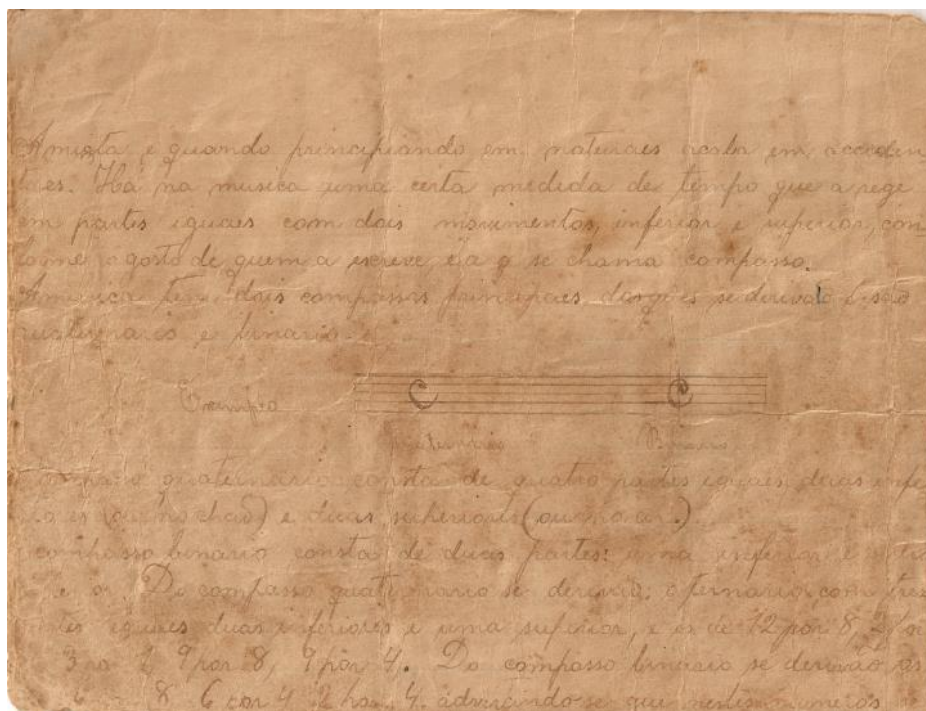 A mixta é quando principiando em naturaes acaba em acciden_
taes. Há na musica uma certa medida de tempo que a rege
em partes iguaes com dois movimentos, inferior e superior, con_
forme o gosto de quem a escreve, é a q se chama compasso.
A musica tem dois compassos principaes, dos q̃es se derivão
quaternario e binario.
Exemplo
Quaternario Binario
compasso quaternario consta de quatro partes iguaes duas infe
(ou no chão) e duas superiores (ou no ar.)
compasso binario consta de duas partes: uma inferior e
Do compasso quaternario se derivão: o ternario, com tres
partes iguaes duas inferiores e uma superior, e os de 12 por 8,
9 por 8, 9 por 4. Do compasso binario se derivão os
8 6 por 4 2 por 4 advertindo-se que nestes numeros